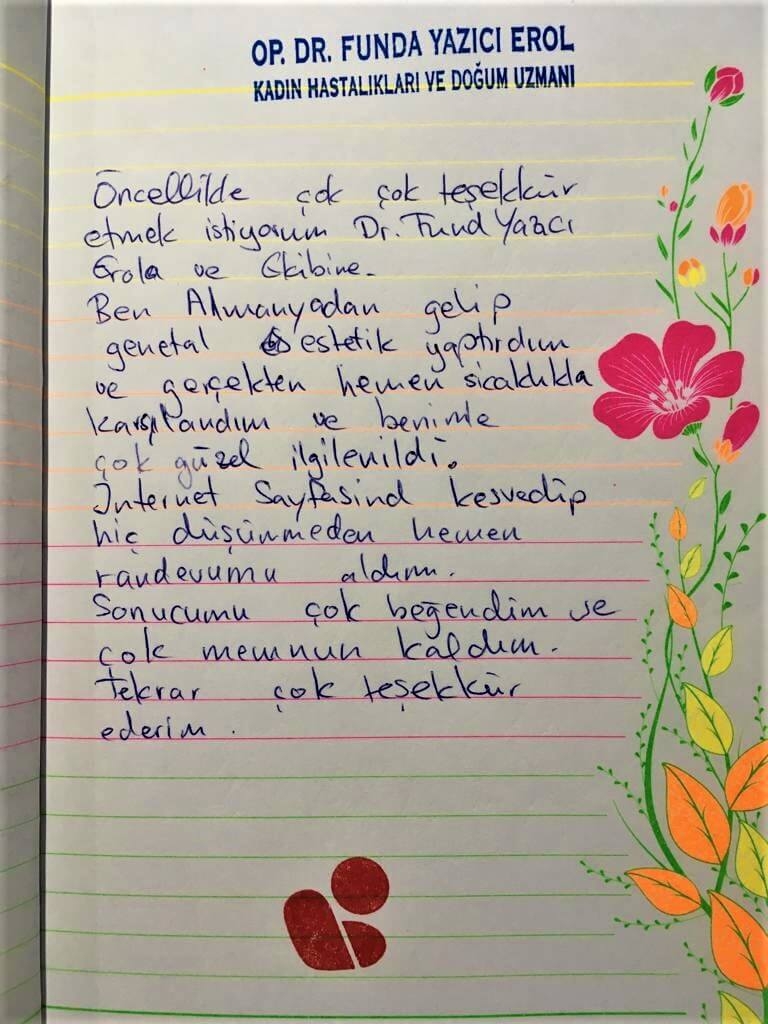 OP. DR. FUNDA YAZICI EROL
KADIN HASTALIKLARI VE DOĞUM UZMANI
Öncellilde çok çok teşekkür
etmek istiyorum Dr. Fund Yazıcı
Erola ve Ekibine.
Ben Almanyadan gelip
genetal estetik yaptırdım
ve gerçekten hemen sicaklıkla
karşılandım ve benimle
çok güzel ilgilenildi.
Internet Sayfasind kesvedip
hiç düşünmeden hemen
randevumu aldım.
Sonucumu çok beğendim ve
çok memnun kaldım.
Tekrar çok teşekkür
ederim.